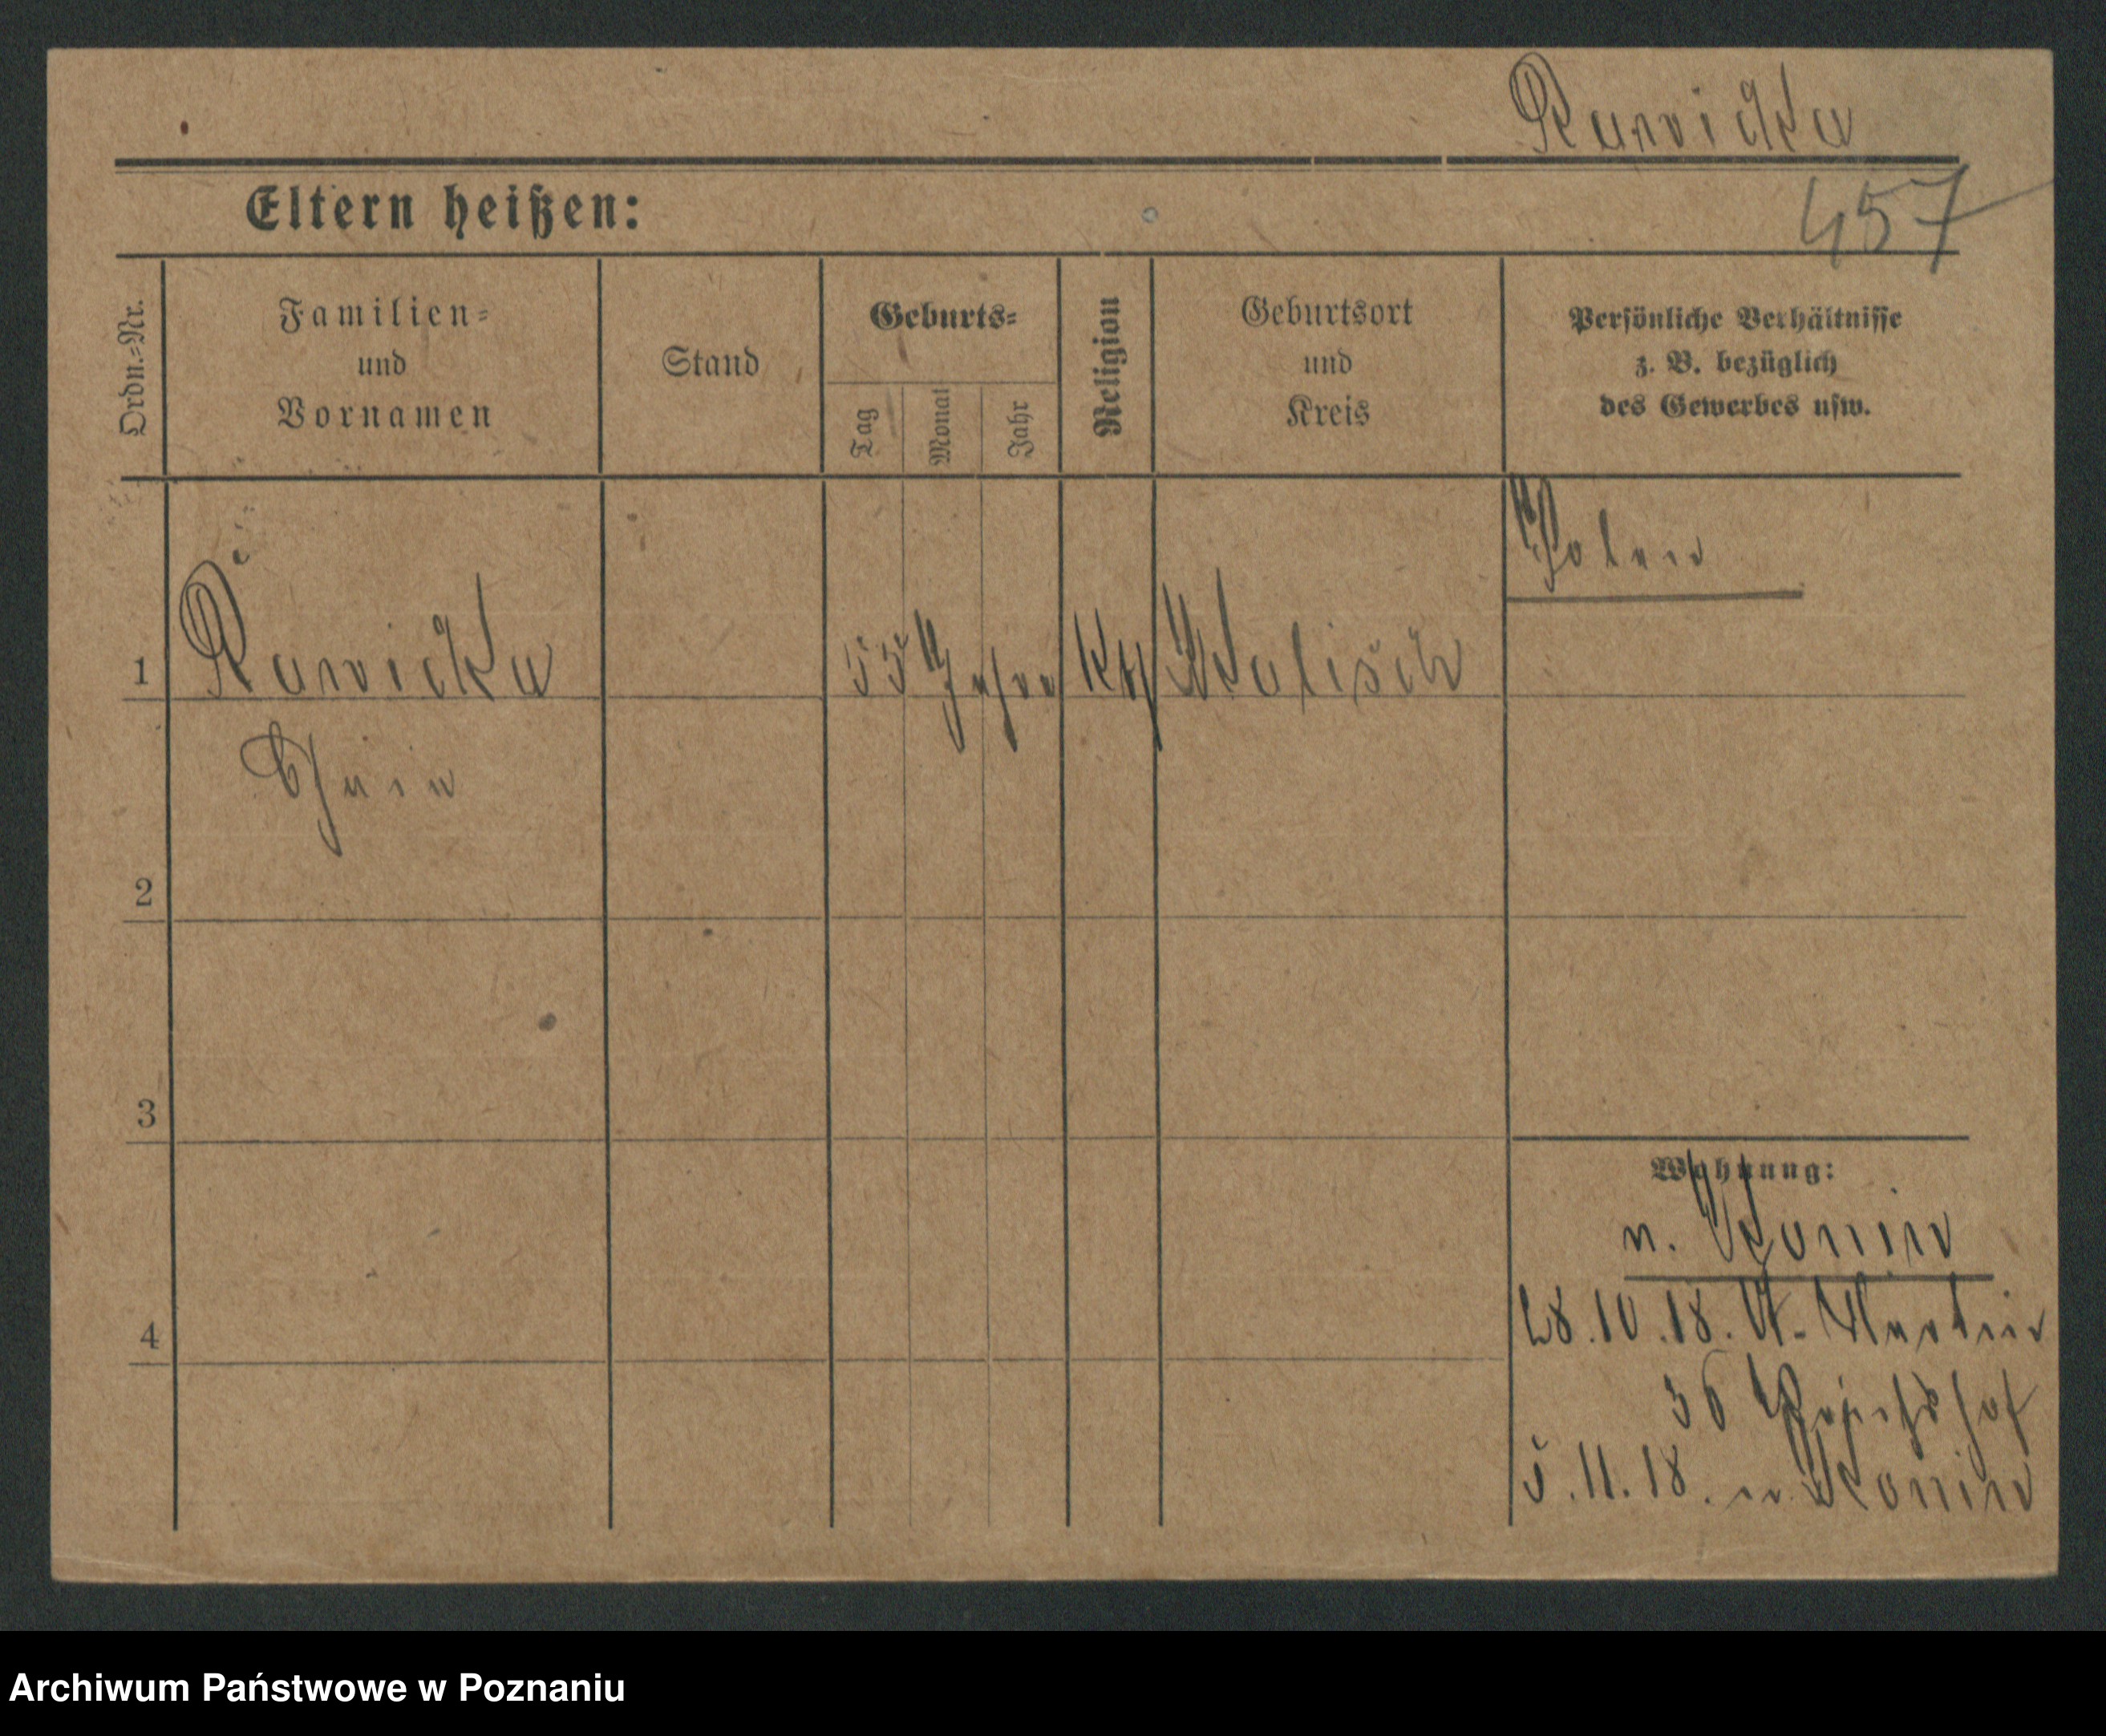 Rawicka
457
Eltern heißen:
Ordn.=Nr.
Familien=
und
Vornamen
Stand
Geburts=
Tag
Monat
Jahr
Religion
Geburtsort
und
Kreis
Persönliche Verhältnisse
z. B. bezüglich
des Gewerbes usw.
Polen
1 Rawicka 55 Jahre Kth Kalisch
2
3
4
Wohnung:
n. Konin
28.10.18. St. Martin
36 Reichshof
5.11.18. n. Konin
Archiwum Państwowe w Poznaniu